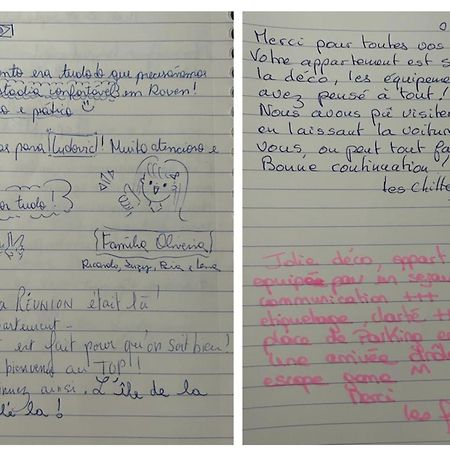 ento era tudo do que precisávamos
estadia confortável em Rouen!
e prático
para Ludovic! Muito atencioso e
tudo!
Família Oliveira
Ricardo,
La RÉUNION était là!
partement -
est fait pour qu'on soit bien!
bienvenu au TOP!!
ainsi. L'île de la
là!
Merci pour toutes vos
Votre appartement est s
la déco, les équipeme
avez pensé à tout!
Nous avons pu visiter
en laissant la voitur
vous, on peut tout fa
Bonne continuation!
les Chilte
Jolie déco, appart
équipée pour un séjour
communication +++
étiquetage clarté ++
place de Parking e
une arrivée drôl
escape game
Merci
les f